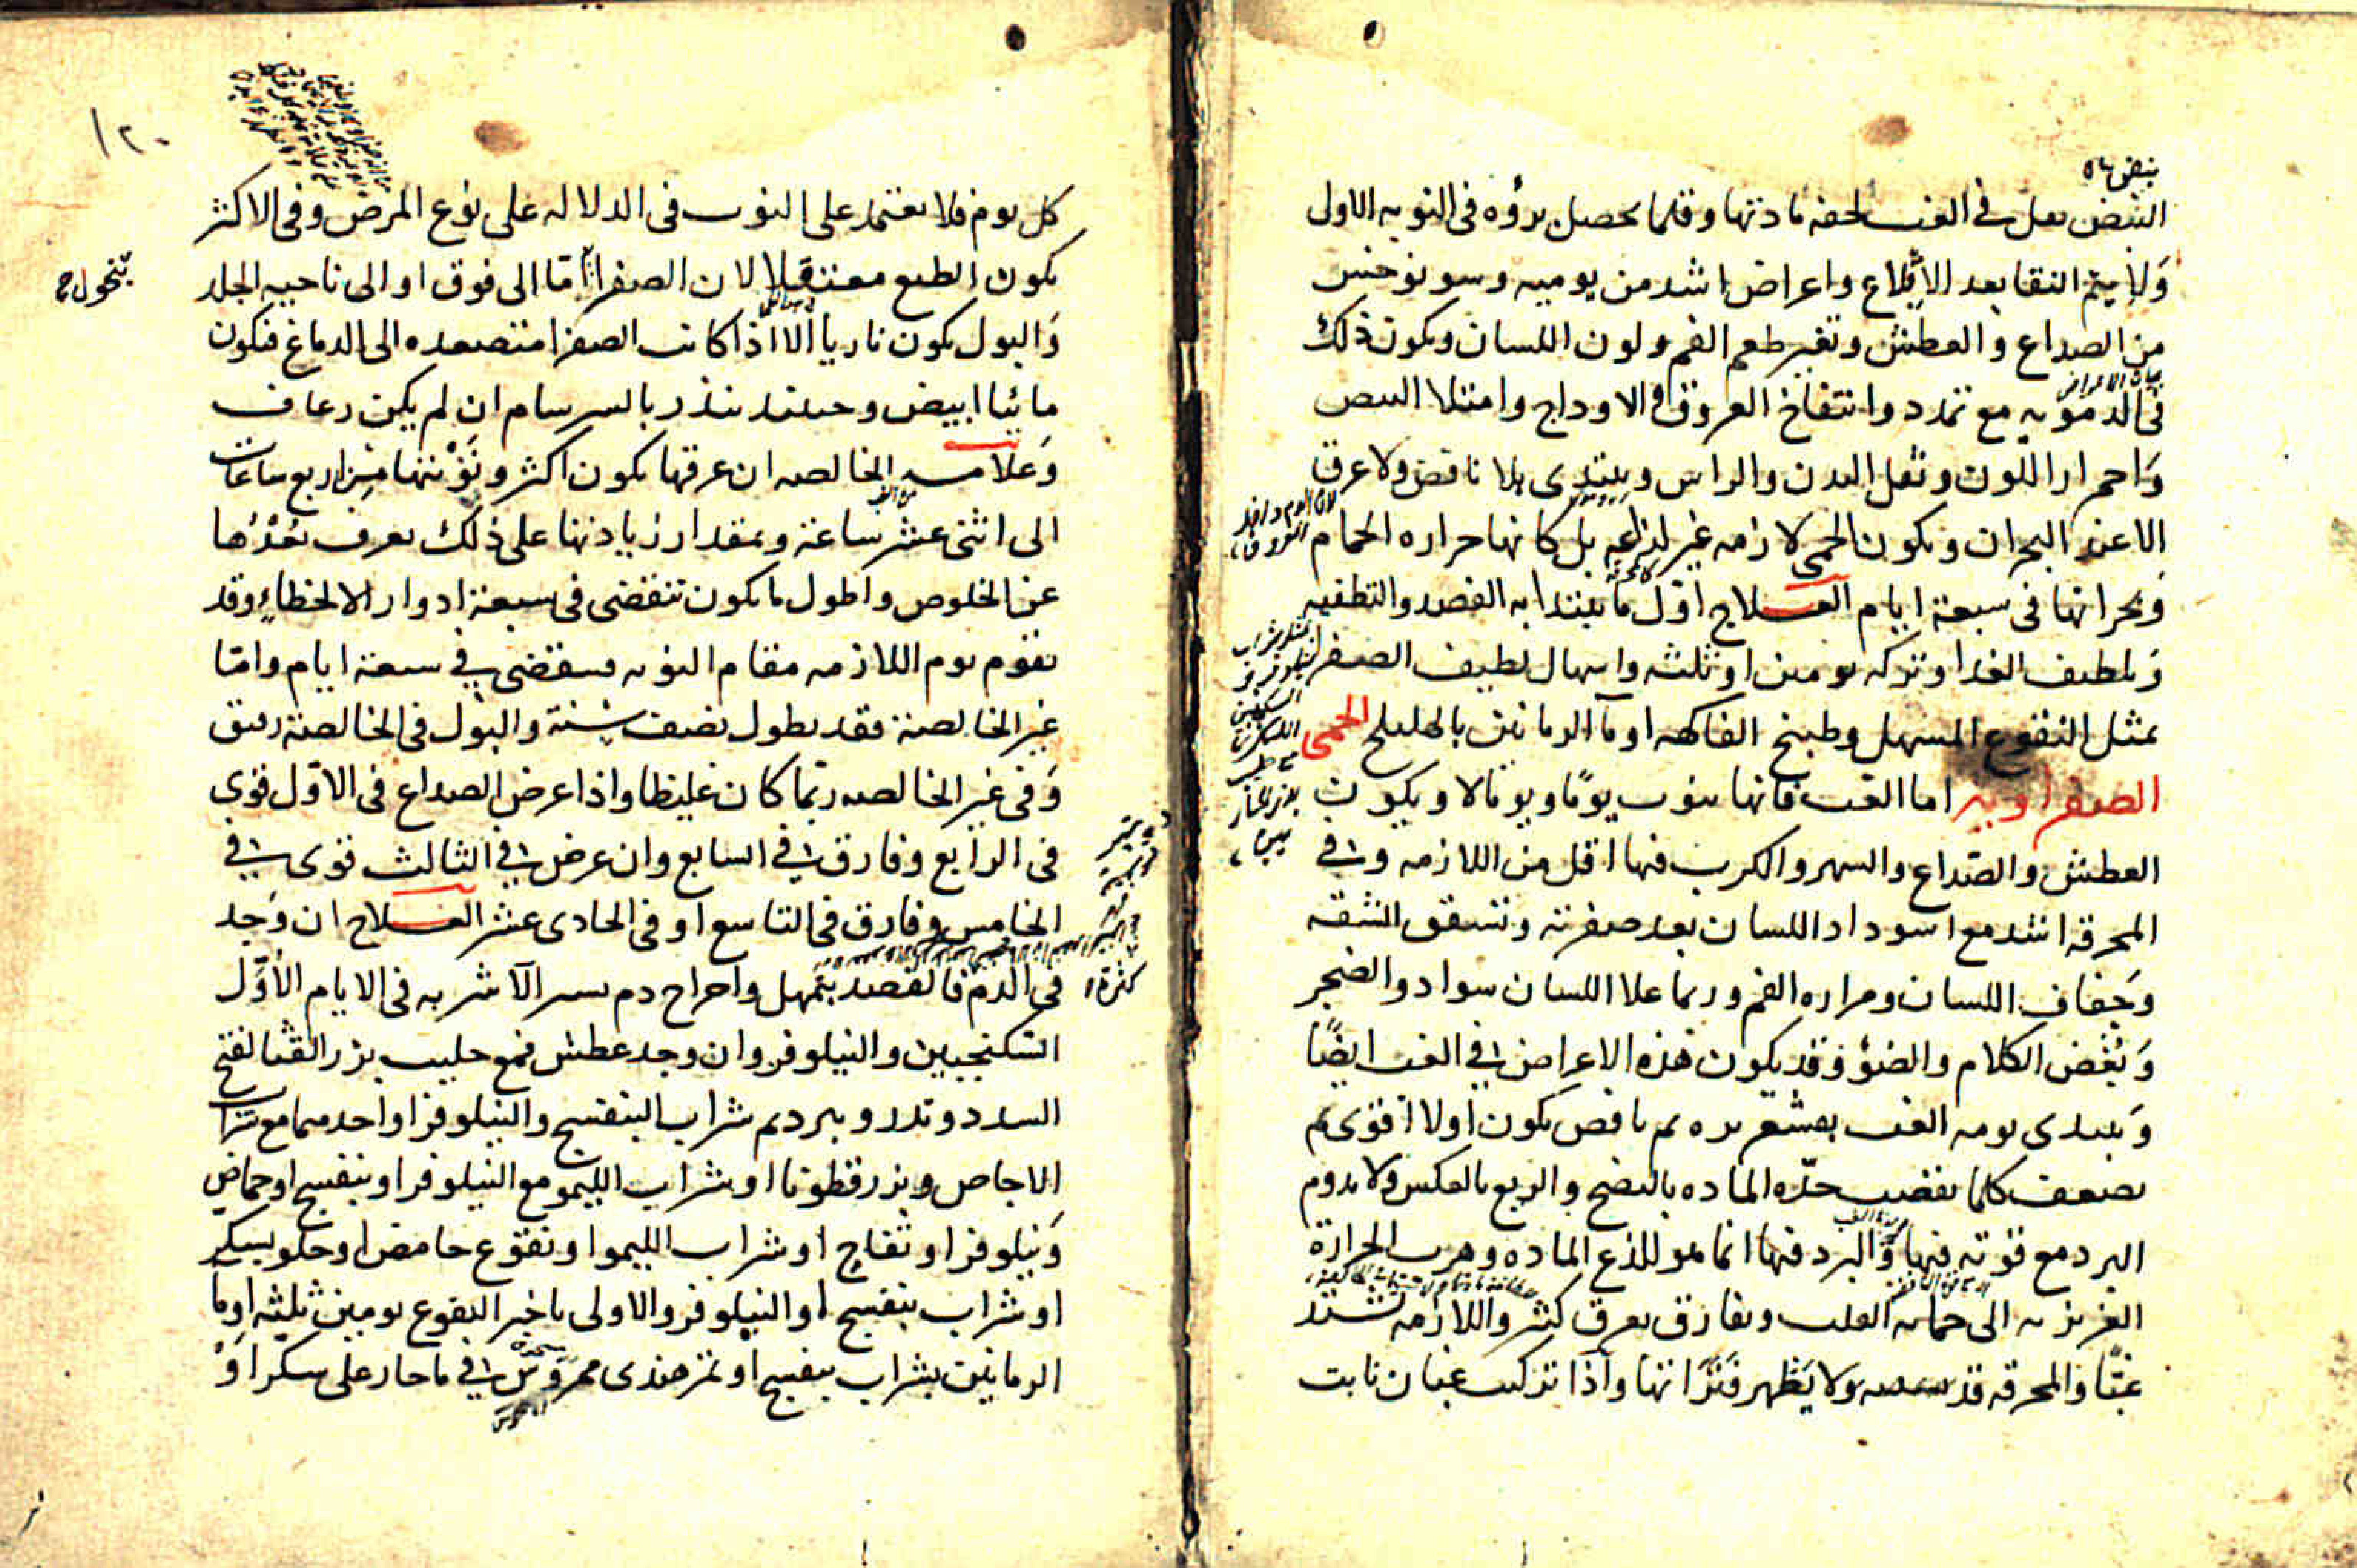 النبض تعل في الغب لخفه مادتها وقلما يحصل برؤه فى النوبه الاولى
ولا يتم النقا بعد الاقلاع واعراض اشد من يوميه وسونوخس
من الصداع والعطش وتغير طعم الفم ولون اللسان ويكون ذلك
فى الدمويه مع تمدد وانتفاخ العروق والاوداج وامتلا النبض
واحمرار اللون وثقل البدن والراس ويبتدى بلا نافض ولا عرق
الا عند البحران ويكون الحمى لازمه غير لذاعه بل كانها حراره الحمام
وبحرانها فى سبعة ايام العلاج اول ما يبتدا به الفصد والتطفيه
وتلطيف الغدا وتركه يومين او ثلثه واسهال لطيف الصفرا
بمثل النقوع المسهل وطبيخ الفاكهه او ما الرمانين بالهليلج الحمى
الصفراويه اما الغب فانها تنوب يومًا ويوما لا ويكون
العطش والصداع والسهر والكرب فيها اقل من اللازمه و فى
المحرقه اشد مع اسوداد اللسان بعد صفرته وتشقق الشفه
وجفاف اللسان ومراره الفم وربما علا اللسان سواد والضجر
وبغض الكلام والضوء وقد يكون هذه الاعراض فى الغب ايضًا
ويبتدى نوبه الغب بقشعريره ثم نافض يكون اولا اقوى ثم
يضعف كلما نقصت حدّه الماده بالنضج والربع بالعكس ولا يدوم
البرد مع قوته فيها والبرد فيها انما هو للذع الماده وهرب الحرارة
الغريزيه الى حمايه القلب ويفارق بعرق كثير واللازمه تشتد
غبّا والمحرقه قد ولا يظهر فتراتها واذا تركب غبان نابت
١٢٠
كل يوم فلا يعتمد على النوب فى الدلاله على نوع المرض وفى الاكثر
يكون الطبع معتقلا لان الصفرا امّا الى فوق او الى ناحيه الجلد
والبول يكون ناريا الا اذا كانت الصفرا متصعده الى الدماغ فيكون
مائيا ابيض وحينئذ ينذر بالسرسام ان لم يكن رعاف
وعلامه الخالصه ان عرقها يكون اكثر ونوبتها من اربع ساعات
الى اثنى عشر ساعة وبمقدار زيادتها على ذلك يعرف بعدها
عن الخلوص واطول ما يكون تنقضى فى سبعة ادوار الا لخطاء وقد
تقوم يوم اللازمه مقام النوبه فينقضى فى سبعة ايام واما
غير الخالصة فقد يطول نصف سنة والبول فى الخالصة رقيق
وفى غير الخالصه ربما كان غليظا واذا عرض الصداع فى الاوّل قوى
فى الرابع وفارق فى السابع وان عرض فى الثالث قوى فى
الخامس وفارق فى التاسع او فى الحادى عشر العلاج ان وجد
فى الدم كثرة فالفصد بتمهل واخراج دم يسير الاشربه فى الايام الاوّل
السكنجبين والنيلوفر وان وجد عطش فمع حليب بزر القثا لفتح
السدد وتدر ويبرد ثم شراب البنفسج والنيلوفر او احدهما مع شراب
الاجاص وبزر قطونا او شراب الليمو مع النيلوفر او بنفسج او حماض
ونيلوفر او تفاح او شراب الليمو او نقوع حامض او حلو بسكر
او شراب بنفسج او النيلوفر والاولى تاخير النقوع يومين ثلثه او ما
الرمانين بشراب بنفسج او تمر هندى ممروس فى ما حار على سكر او